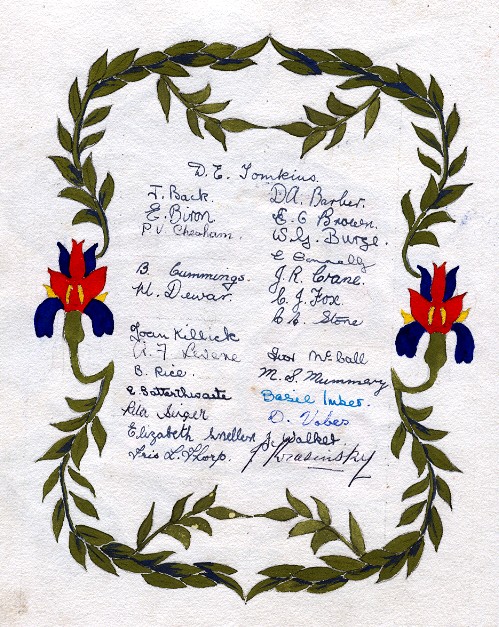 D. E. Tomkins.
J. Back
E. Biron
P. V. Chesham
B. Cummings.
W. Dewar.
Joan Killick
A. J. Levene
B. Rice.
E. Satterthwaite
Rita Singer
Elizabeth Snellen
Iris L. Thorp.
D A. Barber.
E. G Brown.
W. G. Burge.
E Connolly
J. R. Crane.
C. J. Fox.
A. A. Stone
Ivor McCall
M. S. Mummery
Basil Inker.
D. Vobes
J. Walker.
Krasinsky